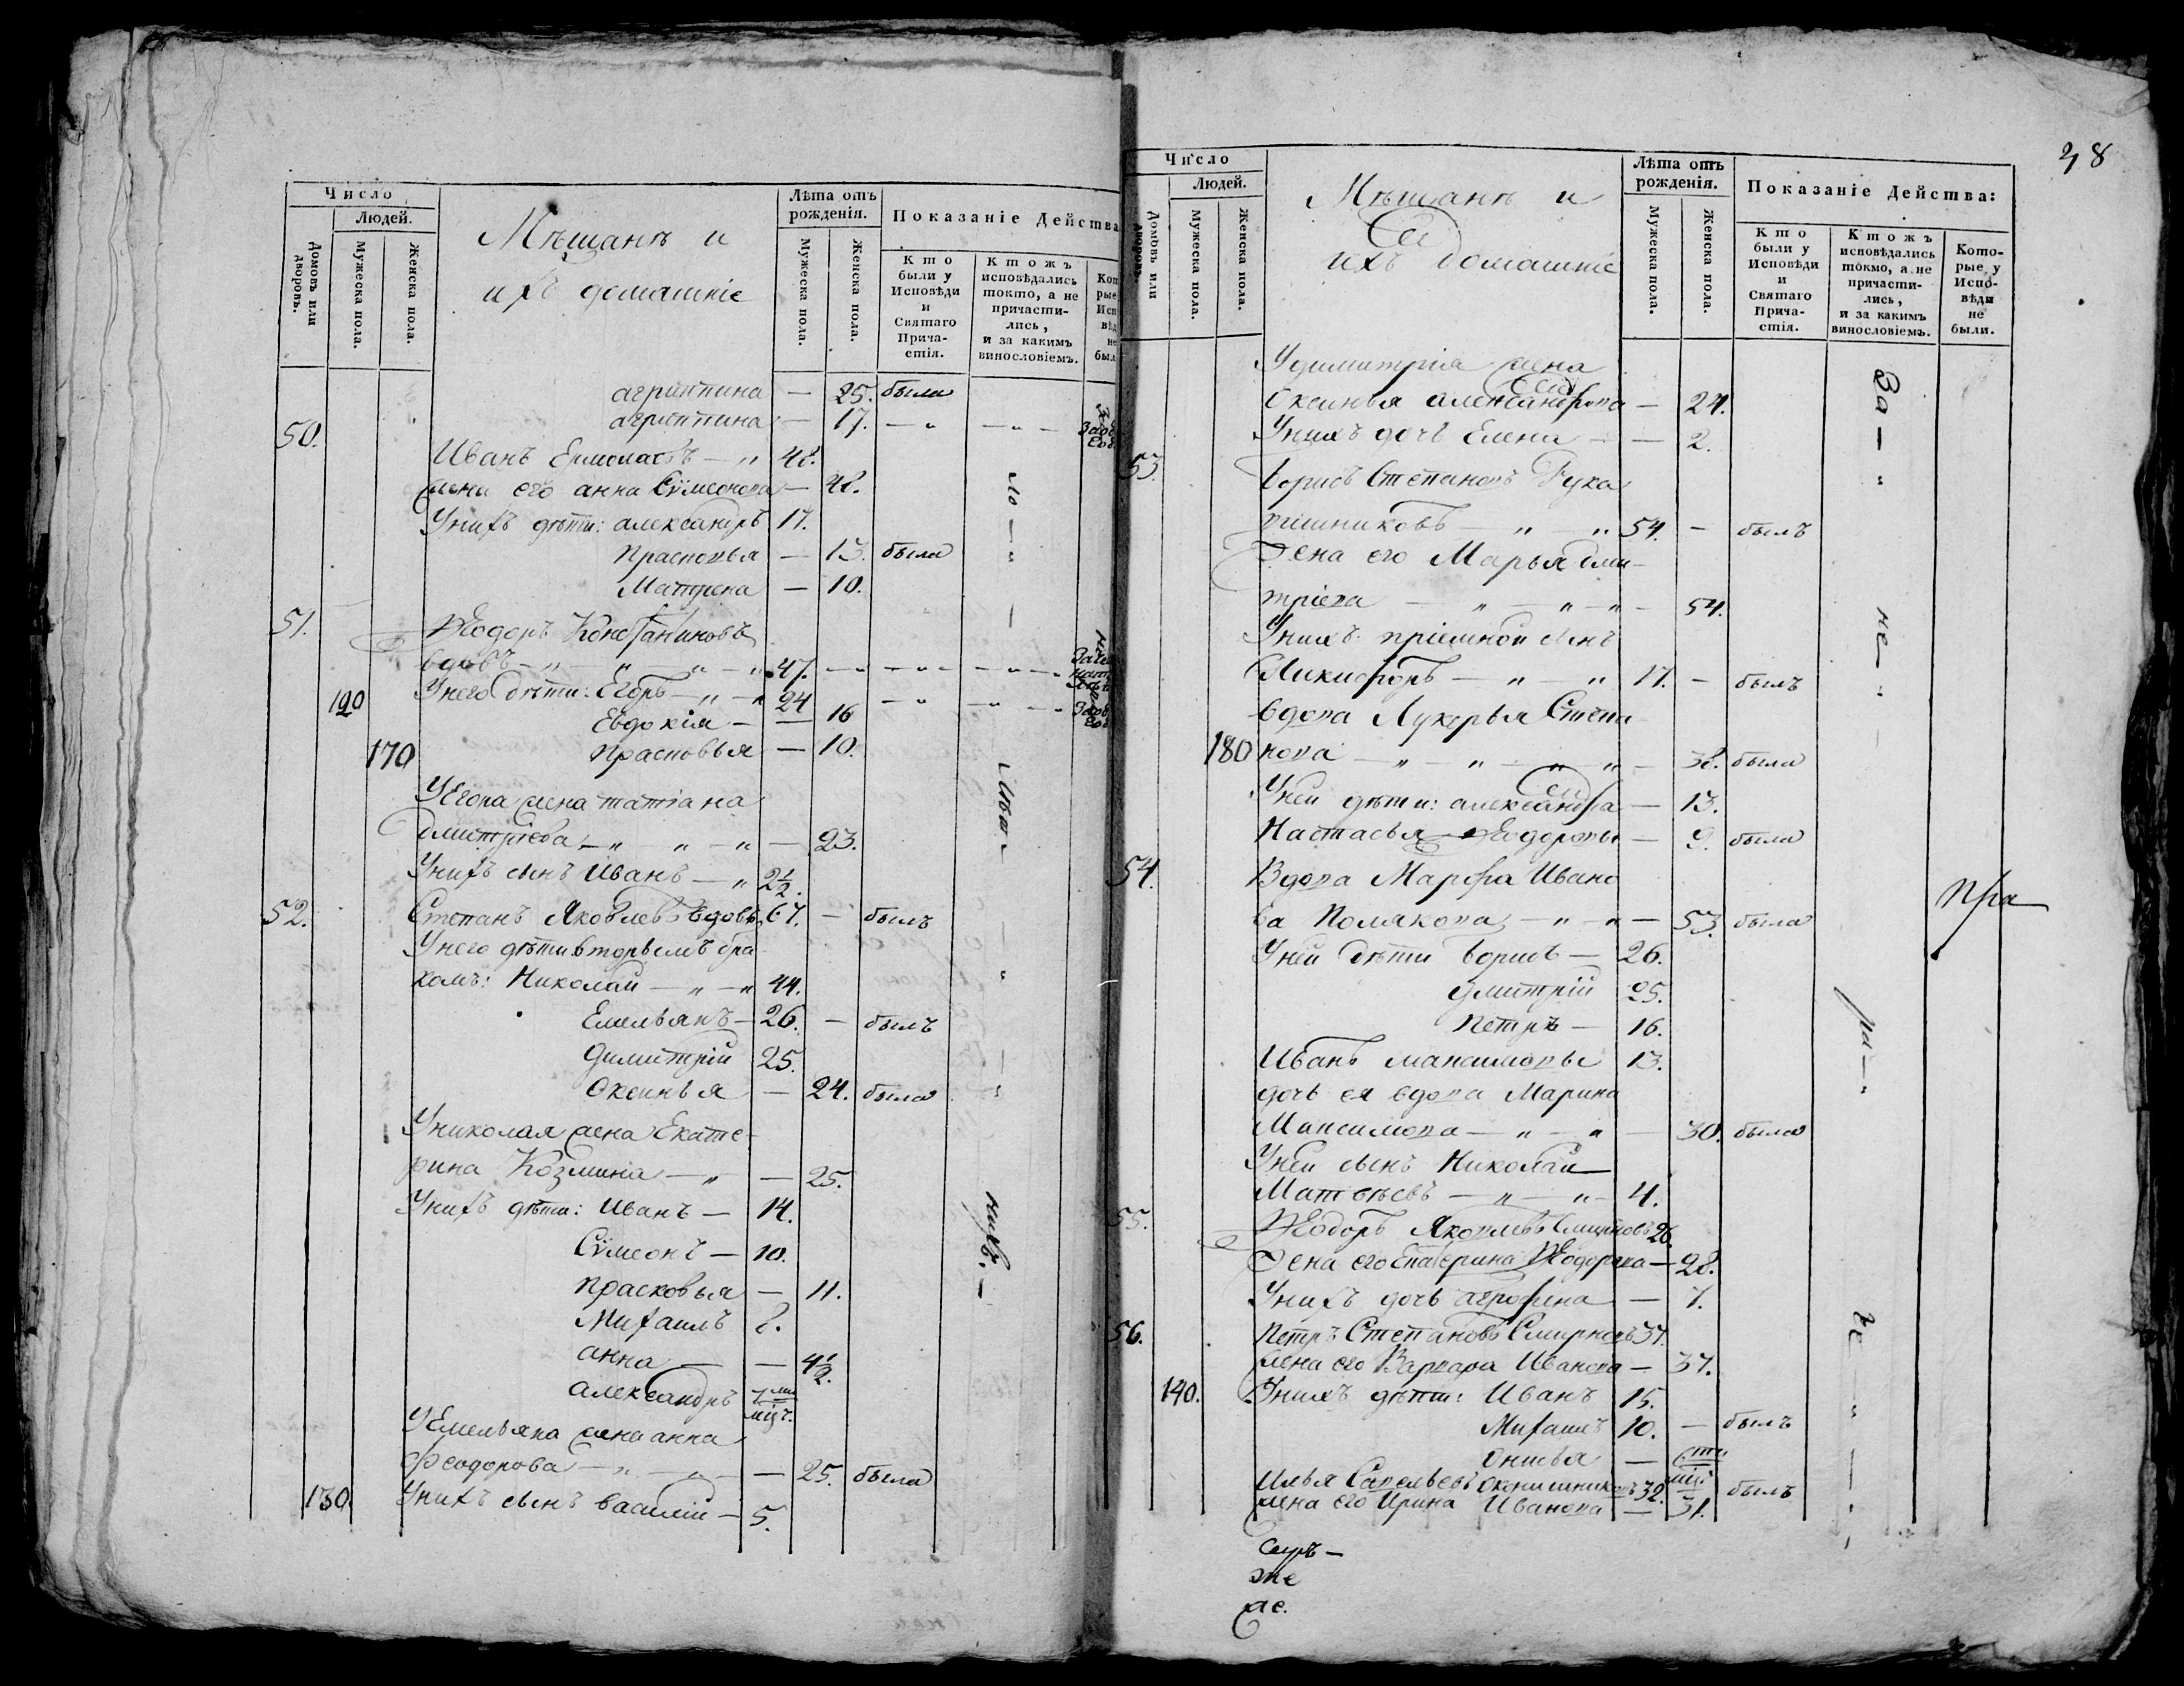 Число
Людей.
Домовъ или дворовъ.
Мужеска пола.
Женска пола.
Мѣщанъ и
ихъ домашніе
Лѣта отъ рожденія.
Мужеска пола.
Женска пола.
Показаніе Действа
Кто были у Исповѣди и Святаго Прича-стія.
Ктожъ исповѣдались токмо, а не причасти-лись, и за какимъ винословіемъ.
агриппина — 25. была
агриппина — 17. — „ — „ —
50.
Иванъ Ермолаевъ — „ 48.
жена его анна Сѵмеонова — 48.
Унихъ дѣти: александръ 17.
Прасковья — 13. была
Матрена — 10.
51. Ѳеодоръ Константиновъ
вдовъ — „ — „ — „ — „ 47. — „ — „ — „ —
120 Унего дѣти: Егоръ — „ — „ 24 — „ — „ —
Евдокія — — 16
170 Прасковья — 10.
УЕгора жена татіана
дмитріева — „ — „ — „ — 23.
Унихъ сынъ Иванъ — „ 2½.
52. Степанъ Яковлевъ вдовъ 67. — былъ
Унего дѣти вторымъ бра
комъ: Николай — „ — „ 44.
Емельянъ — 26. — былъ
Димитрій 25.
Оксинья — 24. была
Униколая жена Екате-
рина Козмина — „ — 25.
Унихъ дѣти: Иванъ — 14.
Сѵмеонъ — 10.
Прасковья — 11.
Михаилъ 8.
анна — — 4½.
александръ 7 ми мцъ.
УЕмельяна жена анна
Ѳеодорова — „ — „ — — 25. была
130. Унихъ сынъ василій — 5.
нихъ. —
38
Число
Людей.
Домовъ или дворовъ.
Мужеска пола.
Женска пола.
Мѣщанъ и
ихъ домашніе
Лѣта отъ рожденія.
Мужеска пола.
Женска пола.
Показаніе Действа:
Кто были у Исповѣди и Святаго Прича-стія.
Ктожъ исповѣдались токмо, а не причасти-лись, и за какимъ винословіемъ.
Кото-рые у Испо-вѣди не были.
Удимитрія жена
Оксинья александрова — 24.
Унихъ дочь Елена — — 2.
53.
борисъ Степановъ Рука
вишниковъ — „ — „ 54. — былъ
Жена его Марья дми-
тріева — „ — „ — „ — 54.
Унихъ пріемной сынъ
Никифоръ — „ — „ 17. — былъ
вдова Лукерья Степа
180 нова — „ — „ — „ — „ — 38. была
Уней дѣти: александра — 13.
Настасья Ѳеодоровы — 9. была
54. Вдова Марфа Ивано
ва Полякова — „ — „ — 53. была
Уней дѣти борисъ — 26.
Дмитрій 25.
Петръ — 16.
Иванъ максимовы 13.
дочь ея вдова Марина
Максимова — „ — „ — 30. была
Уней сынъ Николай
Матвѣевъ — „ — „ — 4.
55. Ѳеодоръ Яковлевъ Смирновъ 26.
Жена его Екатерина Ѳеодорова — 28.
Унихъ дочь агрофена — 7.
56. Петръ Степановъ Смирновъ 37.
жена его Варвара Иванова — 37.
140. Унихъ дѣти: Иванъ 15.
Михаилъ 10. — былъ
Илья Савельевъ Оконишниковъ 32. былъ
жена его Ирина Иванова — 31.
За — „
не — „